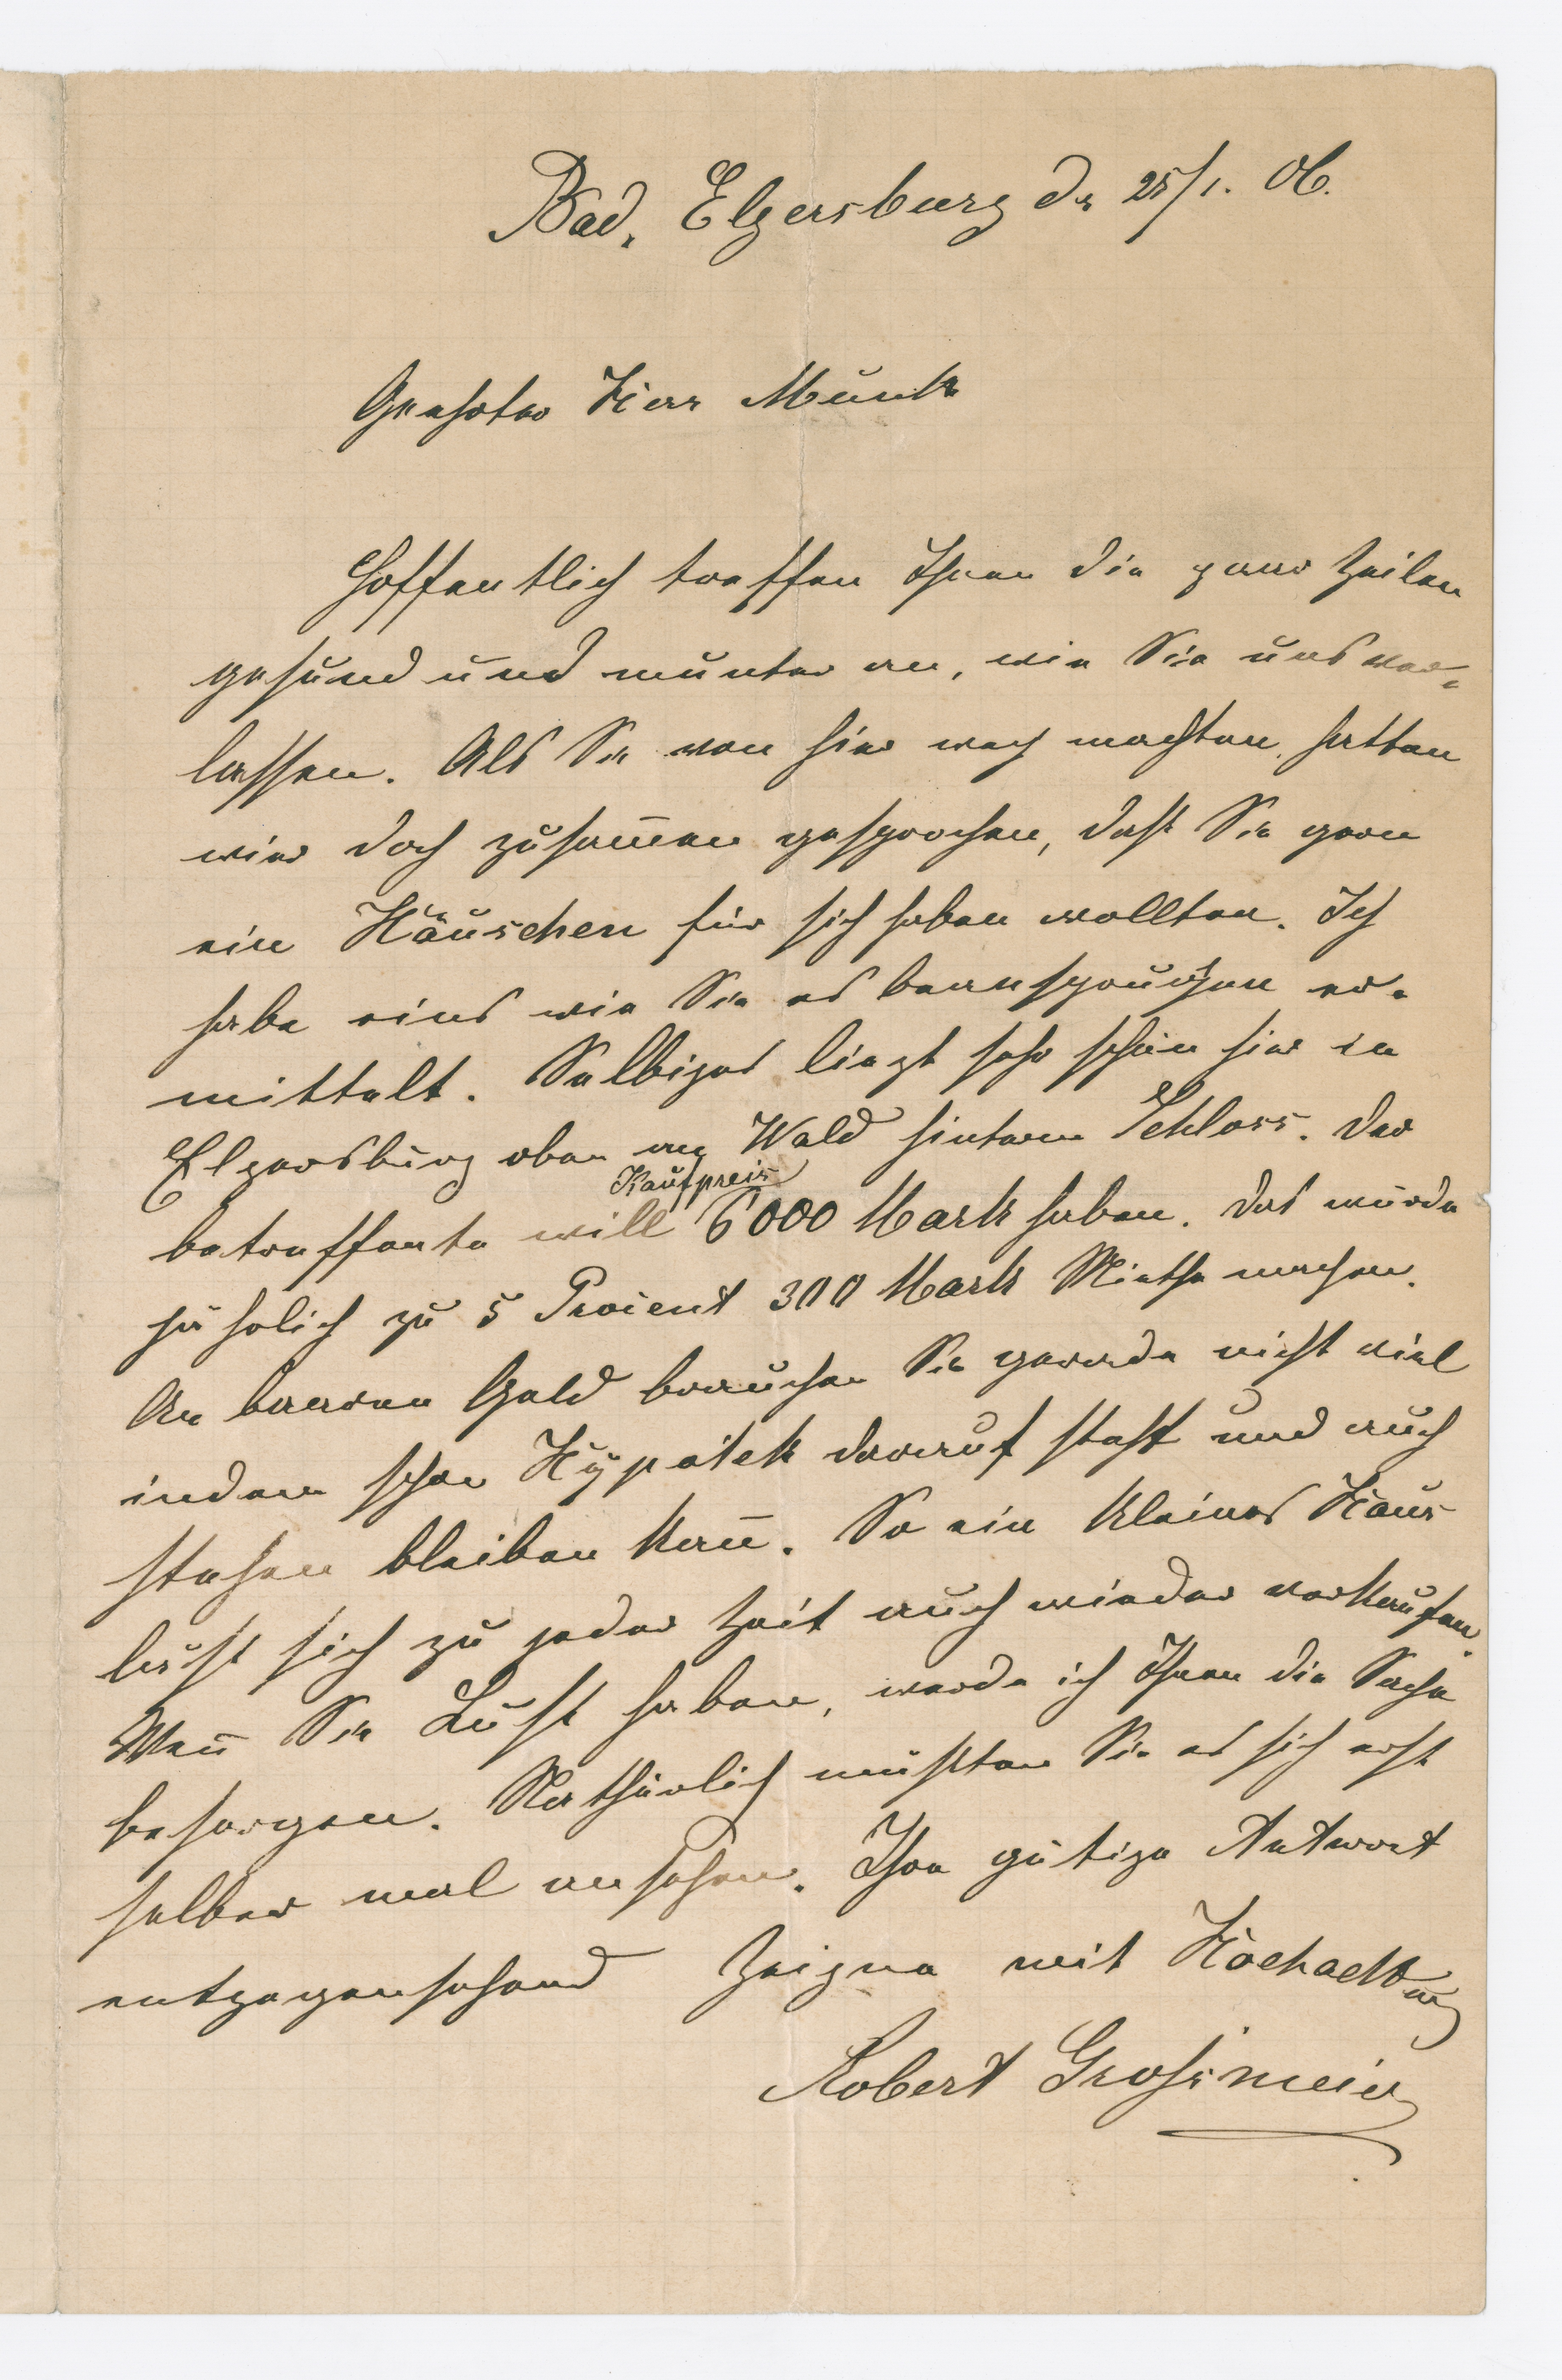 Bad. Elgersburg dn 25/1. 06.
Geehrter Herr Munk
Hoffentlich treffen Ihnen die paar Zeilen
gesund und munter an, wie Sie uns ver-
lassen. Als Sie von hier weg machten, hatten
wir doch zusam̅en gesprochen, daß Sie gern
ein Häuschen für sich haben wollten. Ich
habe eins wie Sie es beanspruchen er-
mittelt. Selbiges liegt sehr schön hier in
Elgersburg oben am Wald hinterm Schloss. Der
Kaufpreis
betreffente will 6000 Mark haben. Das würde
jährlich zu 5 Procent 300 Mark Miethe machen.
An baaren Geld brauchen Sie gerade nicht viel
indem schon Hypotek darauf steht und auch
stehen bleiben kan̅. So ein kleines Haus
läßt sich zu jeder Zeit auch wieder verkaufen.
Wen̅ Sie Lust haben, werde ich Ihnen die Sache
besorgen. Nathürlich müßten Sie es sich erst
selber mal ansehen. Ihre gütige Antwort
entgegensehend Zeigne mit Hochachtung
Robert Grossmeier